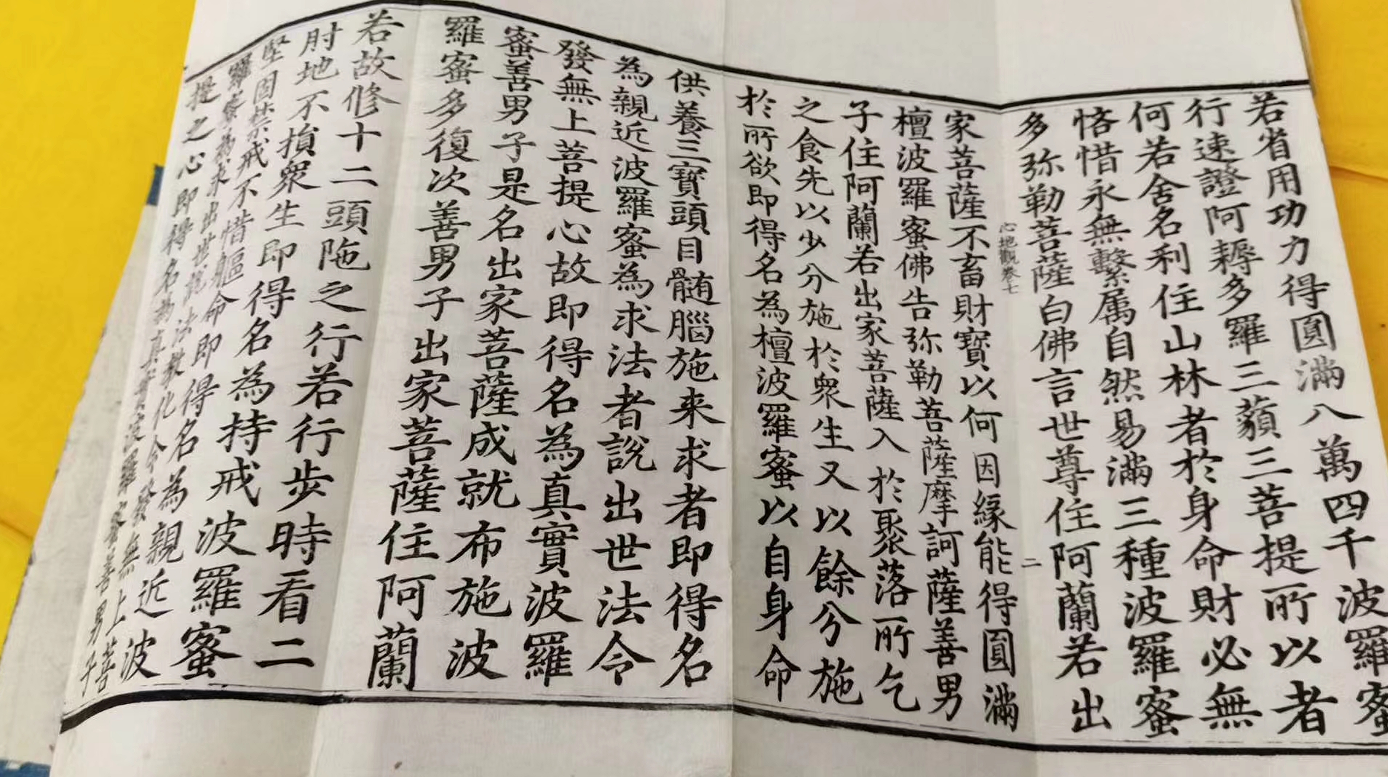 若省用功力得圓滿八萬四千波羅蜜
行速證阿耨多羅三藐三菩提所以者
何若舍名利住山林者於身命財必無
悋惜永無繫属自然易滿三種波羅蜜
多弥勒菩薩白佛言世尊住阿蘭若出
心地觀卷七
二
家菩薩不畜財寶以何因緣能得圓滿
檀波羅蜜佛告弥勒菩薩摩訶薩善男
子住阿蘭若出家菩薩入於聚落所乞
之食先以少分施於衆生又以餘分施
於所欲即得名為檀波羅蜜以自身命
供養三寶頭目髄腦施来求者即得名
為親近波羅蜜為求法者說出世法令
發無上菩提心故即得名為真實波羅
蜜善男子是名出家菩薩成就布施波
羅蜜多復次善男子出家菩薩住阿蘭
若故修十二頭陁之行若行步時看二
肘地不損衆生即得名為持戒波羅蜜
堅固禁戒不惜軀命即得名為親近波
羅蜜為求出世說法教化令發無上菩
提之心即得名為真實波羅蜜善男子